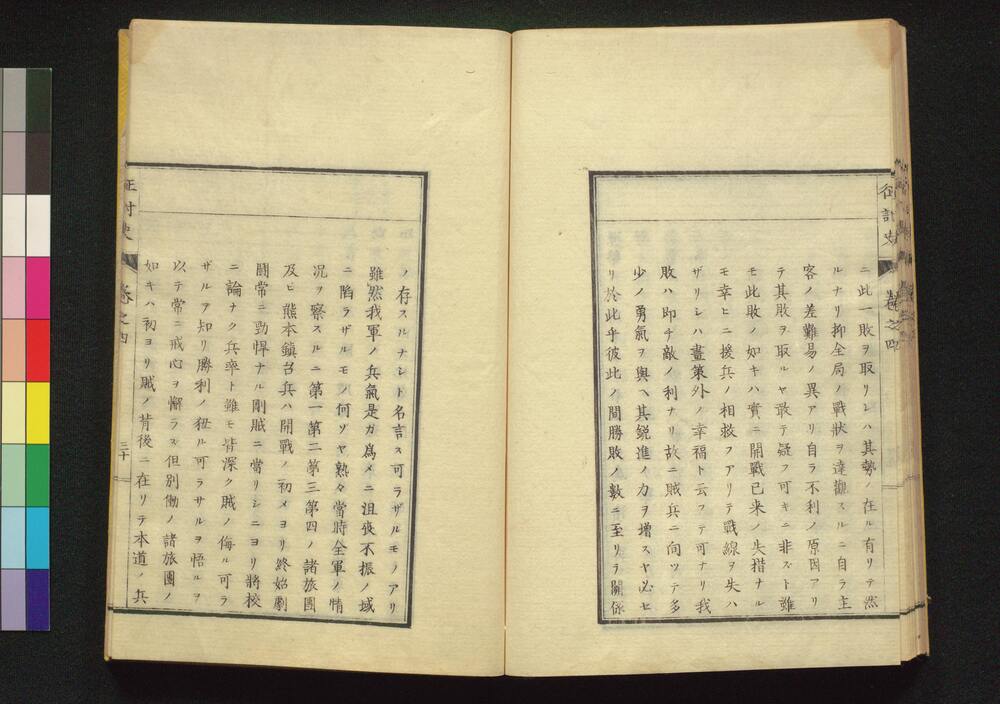 征討史
卷之四
ニ此一敗ヲ取リシハ其勢ノ在ル有リテ然
ルナリ抑全局ノ戰狀ヲ達觀スルニ自ラ主
客ノ差難易ノ異アリ自ラ不利ノ原因アリ
テ其敗ヲ取ルヤ敢テ疑フ可キニ非ズト雖
モ此敗ノ如キハ實ニ開戰已来ノ失措ナル
モ幸ヒニ援兵ノ相救フアリテ戰線ヲ失ハ
ザリシハ畫策外ノ幸福ト云フテ可ナリ我
敗ハ即チ敵ノ利ナリ故ニ賊兵ニ向ツテ多
少ノ勇氣ヲ與ヘ其鋭進ノ力ヲ增スヤ必セ
リ於此乎彼此ノ間勝敗ノ數ニ至リテ關係
ノ存スルナシト名言ス可ラザルモノアリ
雖然我軍ノ兵氣是ガ爲メニ沮喪不振ノ域
ニ陷ラザルモノ何ゾヤ熟々當時全軍ノ情
況ヲ察スルニ第一第二第三第四ノ諸旅團
及ヒ熊本鎮台兵ハ開戰ノ初メヨリ終始劇
鬪常ニ勁悍ナル剛賊ニ當リシニヨリ將校
ニ論ナク兵卒ト雖モ皆深ク賊ノ侮ル可ラ
ザルヲ知リ勝利ノ狃ル可ラサルヲ悟ルヲ
以テ常ニ戒心ヲ懈ラス但別働ノ諸旅團ノ
如キハ初ヨリ賊ノ背後ニ在リテ本道ノ兵
征討史
卷之四
三十